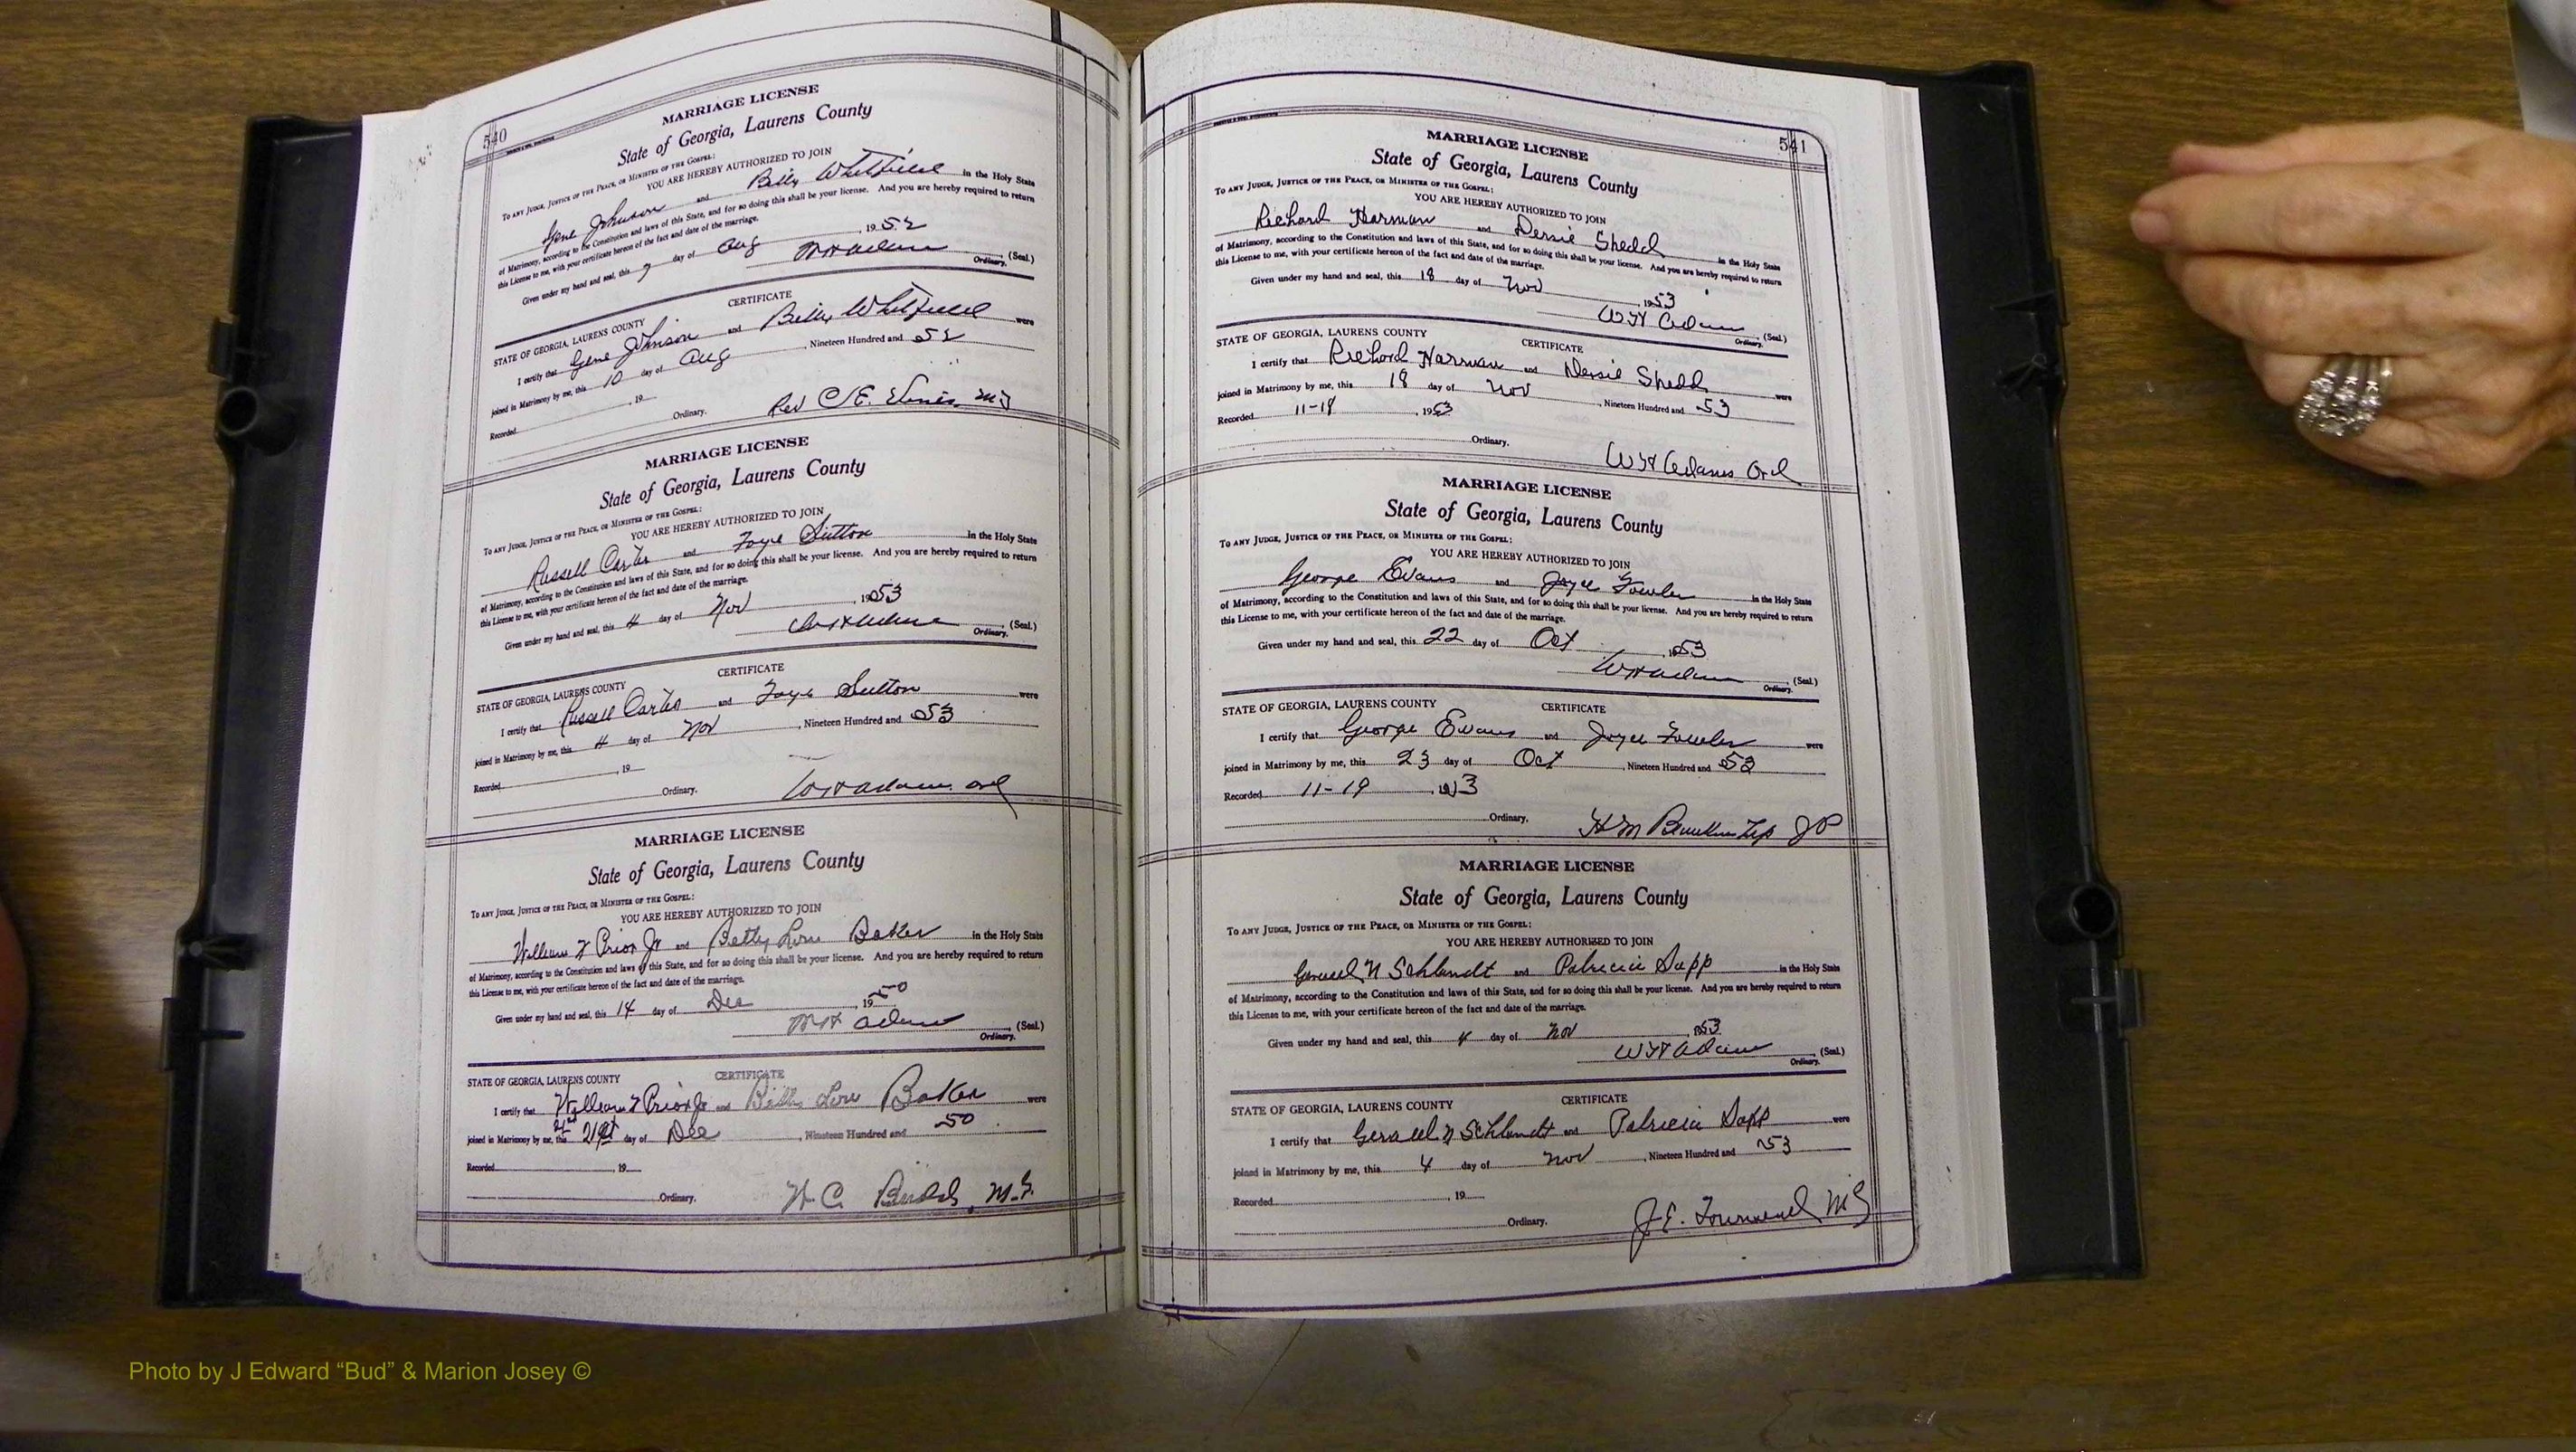 540
MARRIAGE LICENSE
State of Georgia, Laurens County
To any Judge, Justice of the Peace, or Minister of the Gospel:
YOU ARE HEREBY AUTHORIZED TO JOIN
Gene Johnson and Billy Whitfield in the Holy State
of Matrimony, according to the Constitution and laws of this State, and for so doing this shall be your license. And you are hereby required to return
this License to me, with your certificate hereon of the fact and date of the marriage.
Given under my hand and seal, this 7 day of Aug, 1952
Adams (Seal.)
Ordinary.
CERTIFICATE
STATE OF GEORGIA, LAURENS COUNTY
I certify that Gene Johnson and Billy Whitfield were
joined in Matrimony by me, this 10 day of Aug, Nineteen Hundred and 52
Recorded, 19
Ordinary.
Rev C E. MG
MARRIAGE LICENSE
State of Georgia, Laurens County
To any Judge, Justice of the Peace, or Minister of the Gospel:
YOU ARE HEREBY AUTHORIZED TO JOIN
Russell Carter and Faye Sutton in the Holy State
of Matrimony, according to the Constitution and laws of this State, and for so doing this shall be your license. And you are hereby required to return
this License to me, with your certificate hereon of the fact and date of the marriage.
Given under my hand and seal, this 4 day of Nov, 1953
Adams (Seal.)
Ordinary.
CERTIFICATE
STATE OF GEORGIA, LAURENS COUNTY
I certify that Russell Carter and Faye Sutton were
joined in Matrimony by me, this 4 day of Nov, Nineteen Hundred and 53
Recorded, 19
Ordinary.
W H Adams Ord
MARRIAGE LICENSE
State of Georgia, Laurens County
To any Judge, Justice of the Peace, or Minister of the Gospel:
YOU ARE HEREBY AUTHORIZED TO JOIN
William F Prior Jr and Betty Lou Baker in the Holy State
of Matrimony, according to the Constitution and laws of this State, and for so doing this shall be your license. And you are hereby required to return
this License to me, with your certificate hereon of the fact and date of the marriage.
Given under my hand and seal, this 14 day of Dec, 1950
Adams (Seal.)
Ordinary.
CERTIFICATE
STATE OF GEORGIA, LAURENS COUNTY
I certify that William F Prior Jr and Betty Lou Baker were
joined in Matrimony by me, this 21st day of Dec, Nineteen Hundred and 50
Recorded, 19
Ordinary.
M.G.
541
MARRIAGE LICENSE
State of Georgia, Laurens County
To any Judge, Justice of the Peace, or Minister of the Gospel:
YOU ARE HEREBY AUTHORIZED TO JOIN
Richard Harman and Dersie Shedd in the Holy State
of Matrimony, according to the Constitution and laws of this State, and for so doing this shall be your license. And you are hereby required to return
this License to me, with your certificate hereon of the fact and date of the marriage.
Given under my hand and seal, this 18 day of Nov, 1953
W H Adams (Seal.)
Ordinary.
CERTIFICATE
STATE OF GEORGIA, LAURENS COUNTY
I certify that Richard Harman and Dersie Shedd were
joined in Matrimony by me, this 18 day of Nov, Nineteen Hundred and 53
Recorded 11-18, 1953
Ordinary.
W H Adams Ord
MARRIAGE LICENSE
State of Georgia, Laurens County
To any Judge, Justice of the Peace, or Minister of the Gospel:
YOU ARE HEREBY AUTHORIZED TO JOIN
George Evans and Joyce Fowler in the Holy State
of Matrimony, according to the Constitution and laws of this State, and for so doing this shall be your license. And you are hereby required to return
this License to me, with your certificate hereon of the fact and date of the marriage.
Given under my hand and seal, this 22 day of Oct, 1953
W H Adams (Seal.)
Ordinary.
CERTIFICATE
STATE OF GEORGIA, LAURENS COUNTY
I certify that George Evans and Joyce Fowler were
joined in Matrimony by me, this 23 day of Oct, Nineteen Hundred and 53
Recorded 11-19, 1953
Ordinary.
H M Blankenship JP
MARRIAGE LICENSE
State of Georgia, Laurens County
To any Judge, Justice of the Peace, or Minister of the Gospel:
YOU ARE HEREBY AUTHORIZED TO JOIN
Gerald N Schlundt and Patricia Sapp in the Holy State
of Matrimony, according to the Constitution and laws of this State, and for so doing this shall be your license. And you are hereby required to return
this License to me, with your certificate hereon of the fact and date of the marriage.
Given under my hand and seal, this 4 day of Nov, 1953
W H Adams (Seal.)
Ordinary.
CERTIFICATE
STATE OF GEORGIA, LAURENS COUNTY
I certify that Gerald N Schlundt and Patricia Sapp were
joined in Matrimony by me, this 4 day of Nov, Nineteen Hundred and 53
Recorded, 19
Ordinary.
J.E. Townsend MG
Photo by J Edward “Bud” & Marion Josey ©